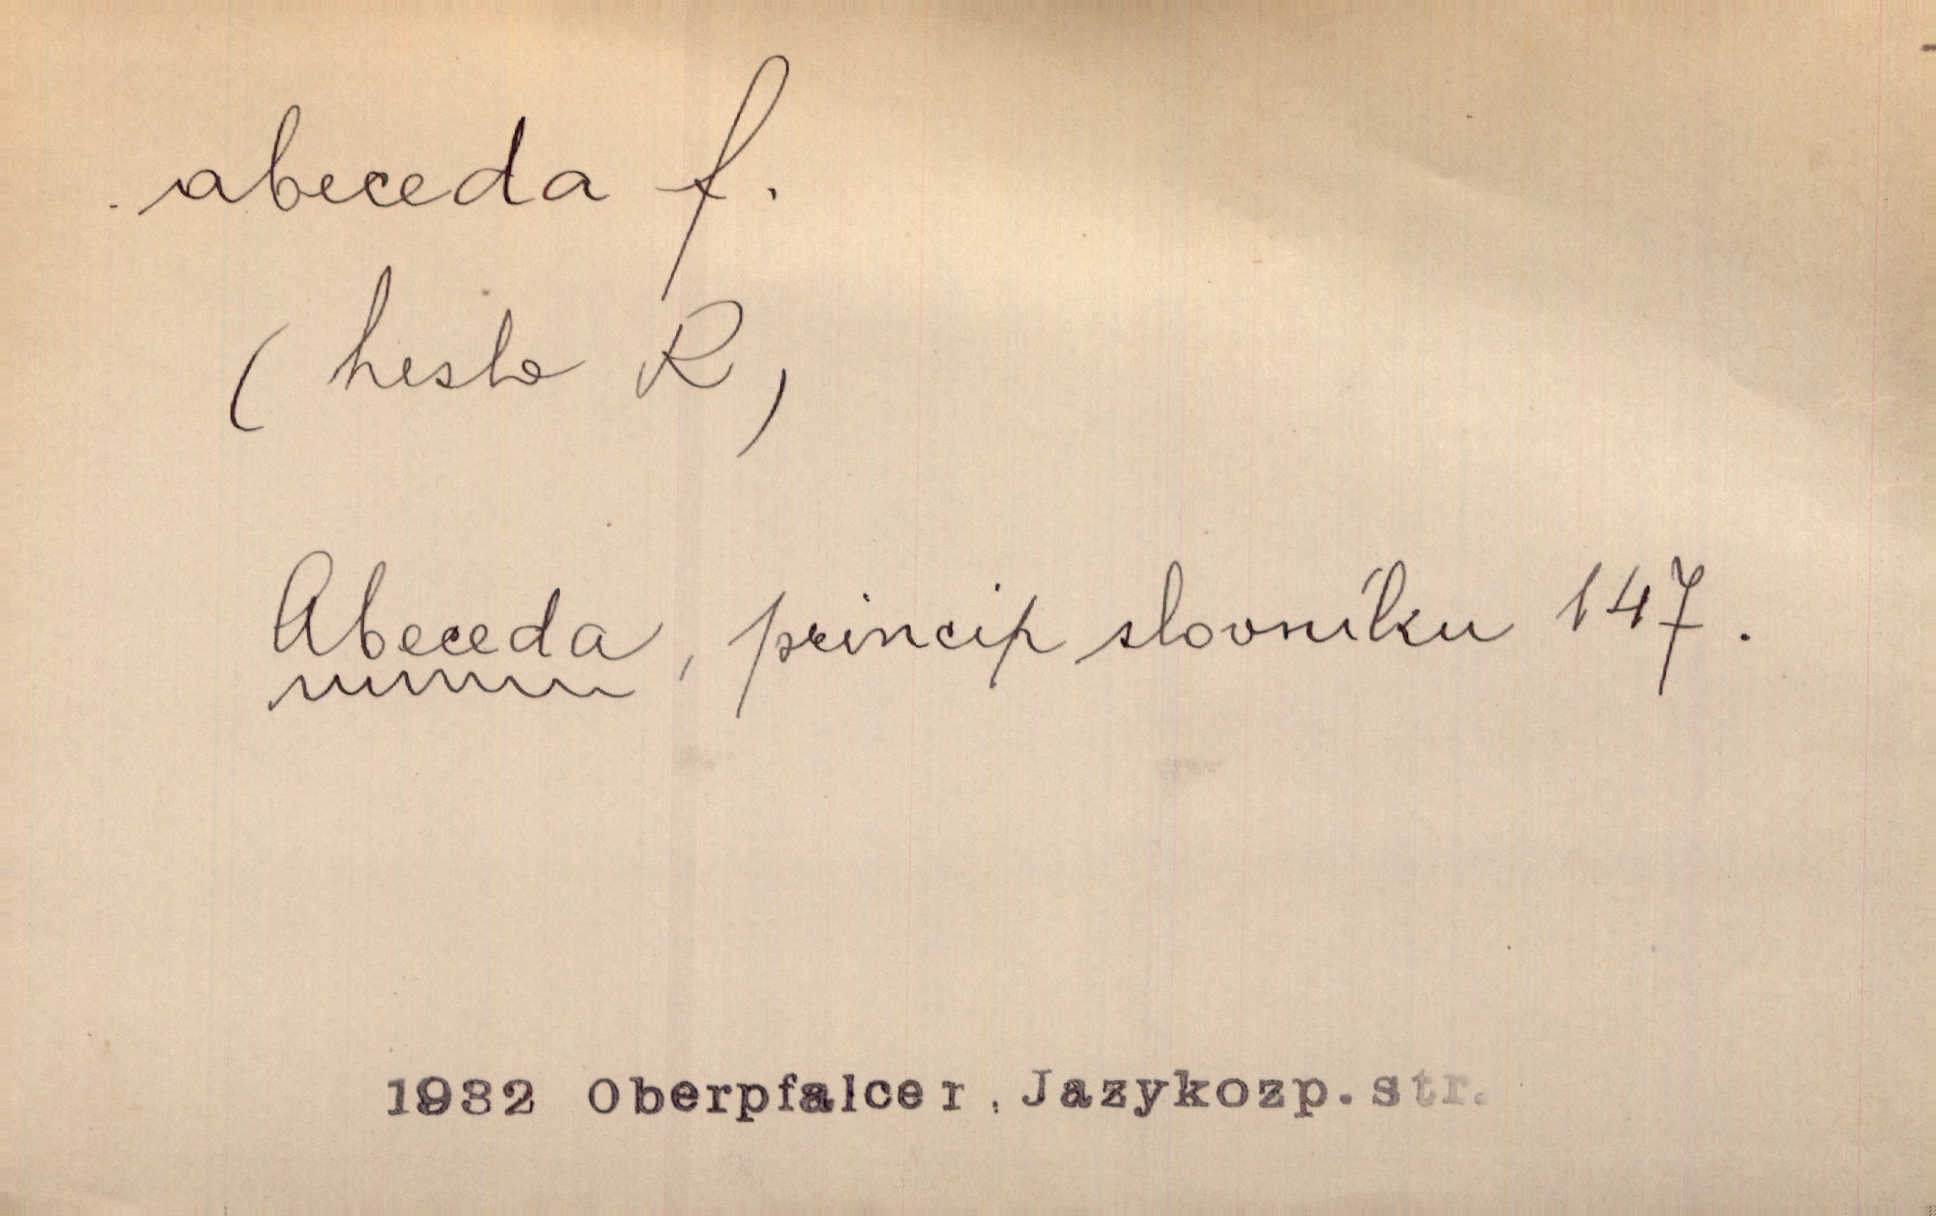 abeceda f.
(heslo R)
Abeceda, princip slovníku 147.
1932 Oberpfalcer, Jazykozp. str.